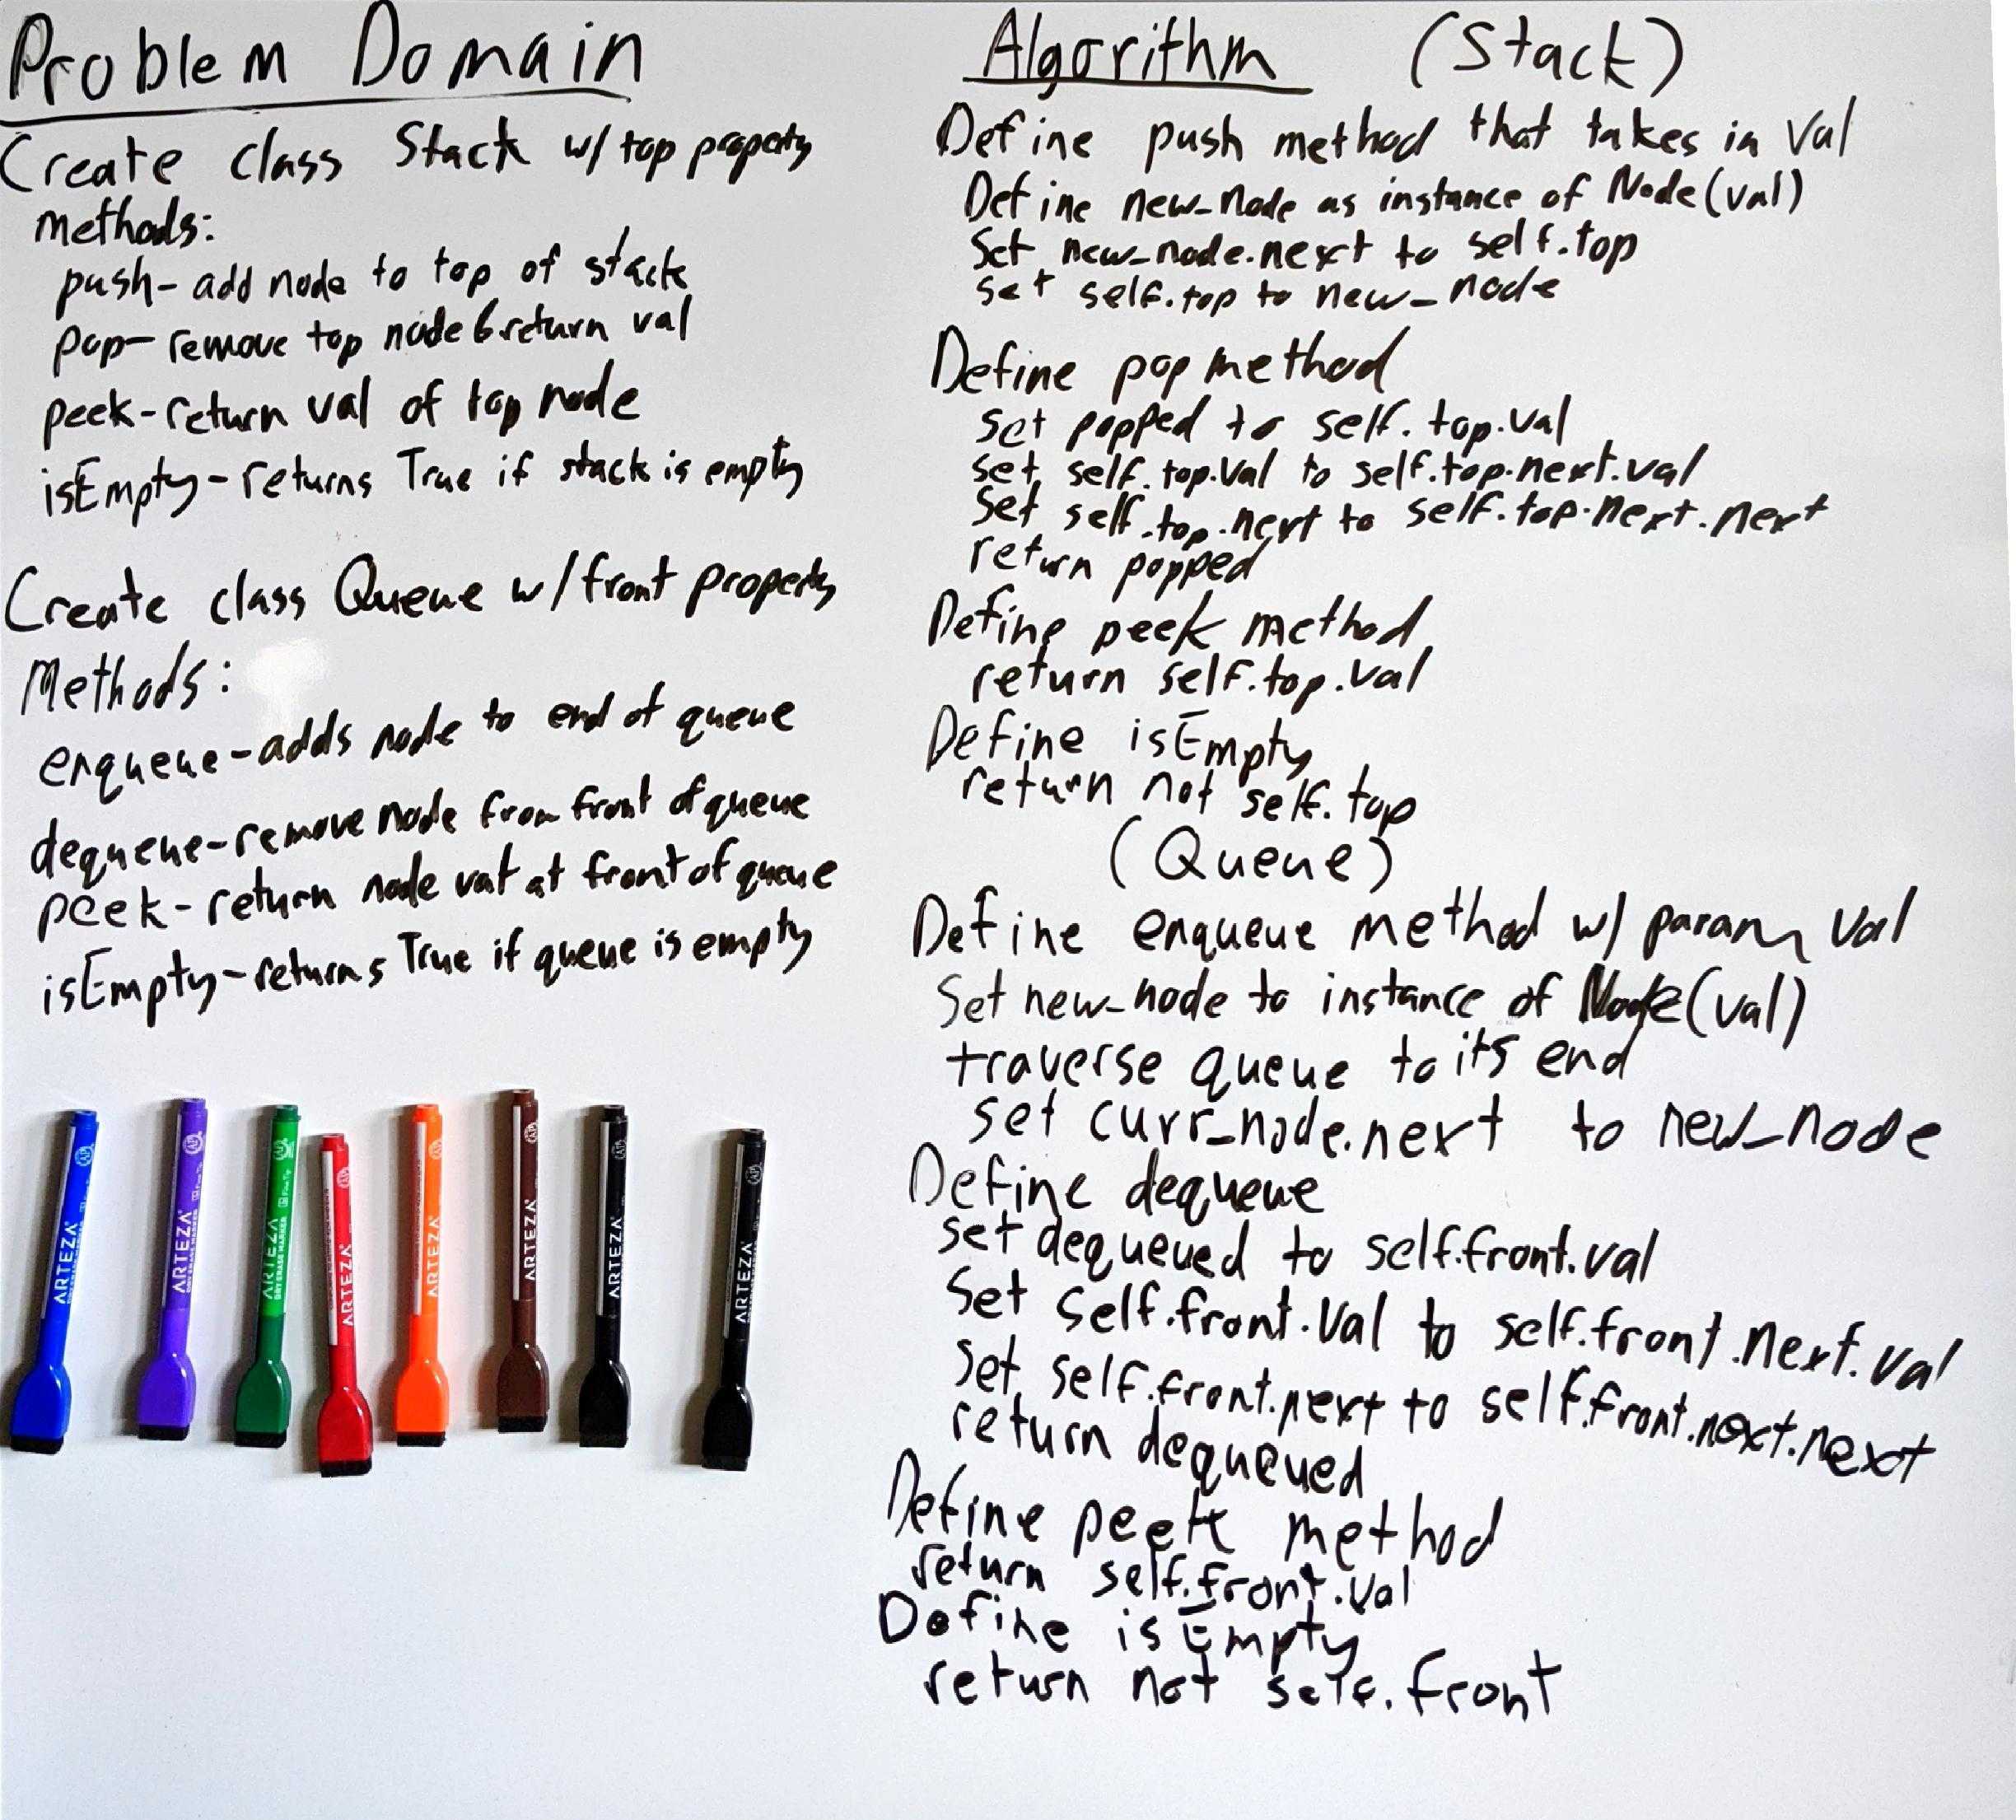 Problem Domain
Create class Stack w/ top property
methods:
push- add node to top of stack
pop- remove top node & return val
peek- return val of top node
isEmpty- returns True if stack is empty
Create class Queue w/ front property
Methods:
enqueue- adds node to end of queue
dequeue- remove node from front of queue
peek- return node val at front of queue
isEmpty- returns True if queue is empty
ARTEZA
ARTEZA
ARTEZA
DRY ERASE MARKER
ARTEZA
ARTEZA
ARTEZA
ARTEZA
ARTEZA
Algorithm (Stack)
Define push method that takes in val
Define new_node as instance of Node(val)
Set new_node.next to self.top
set self.top to new_node
Define pop method
set popped to self.top.val
set self.top.val to self.top.next.val
Set self.top.next to self.top.next.next
return popped
Define peek method
return self.top.val
Define isEmpty
return not self.top
(Queue)
Define enqueue method w/ param val
Set new_node to instance of Node(val)
traverse queue to its end
set curr_node.next to new_node
Define dequeue
set dequeued to self.front.val
Set self.front.val to self.front.next.val
Set self.front.next to self.front.next.next
return dequeued
Define peek method
return self.front.val
Define isEmpty
return not self.front